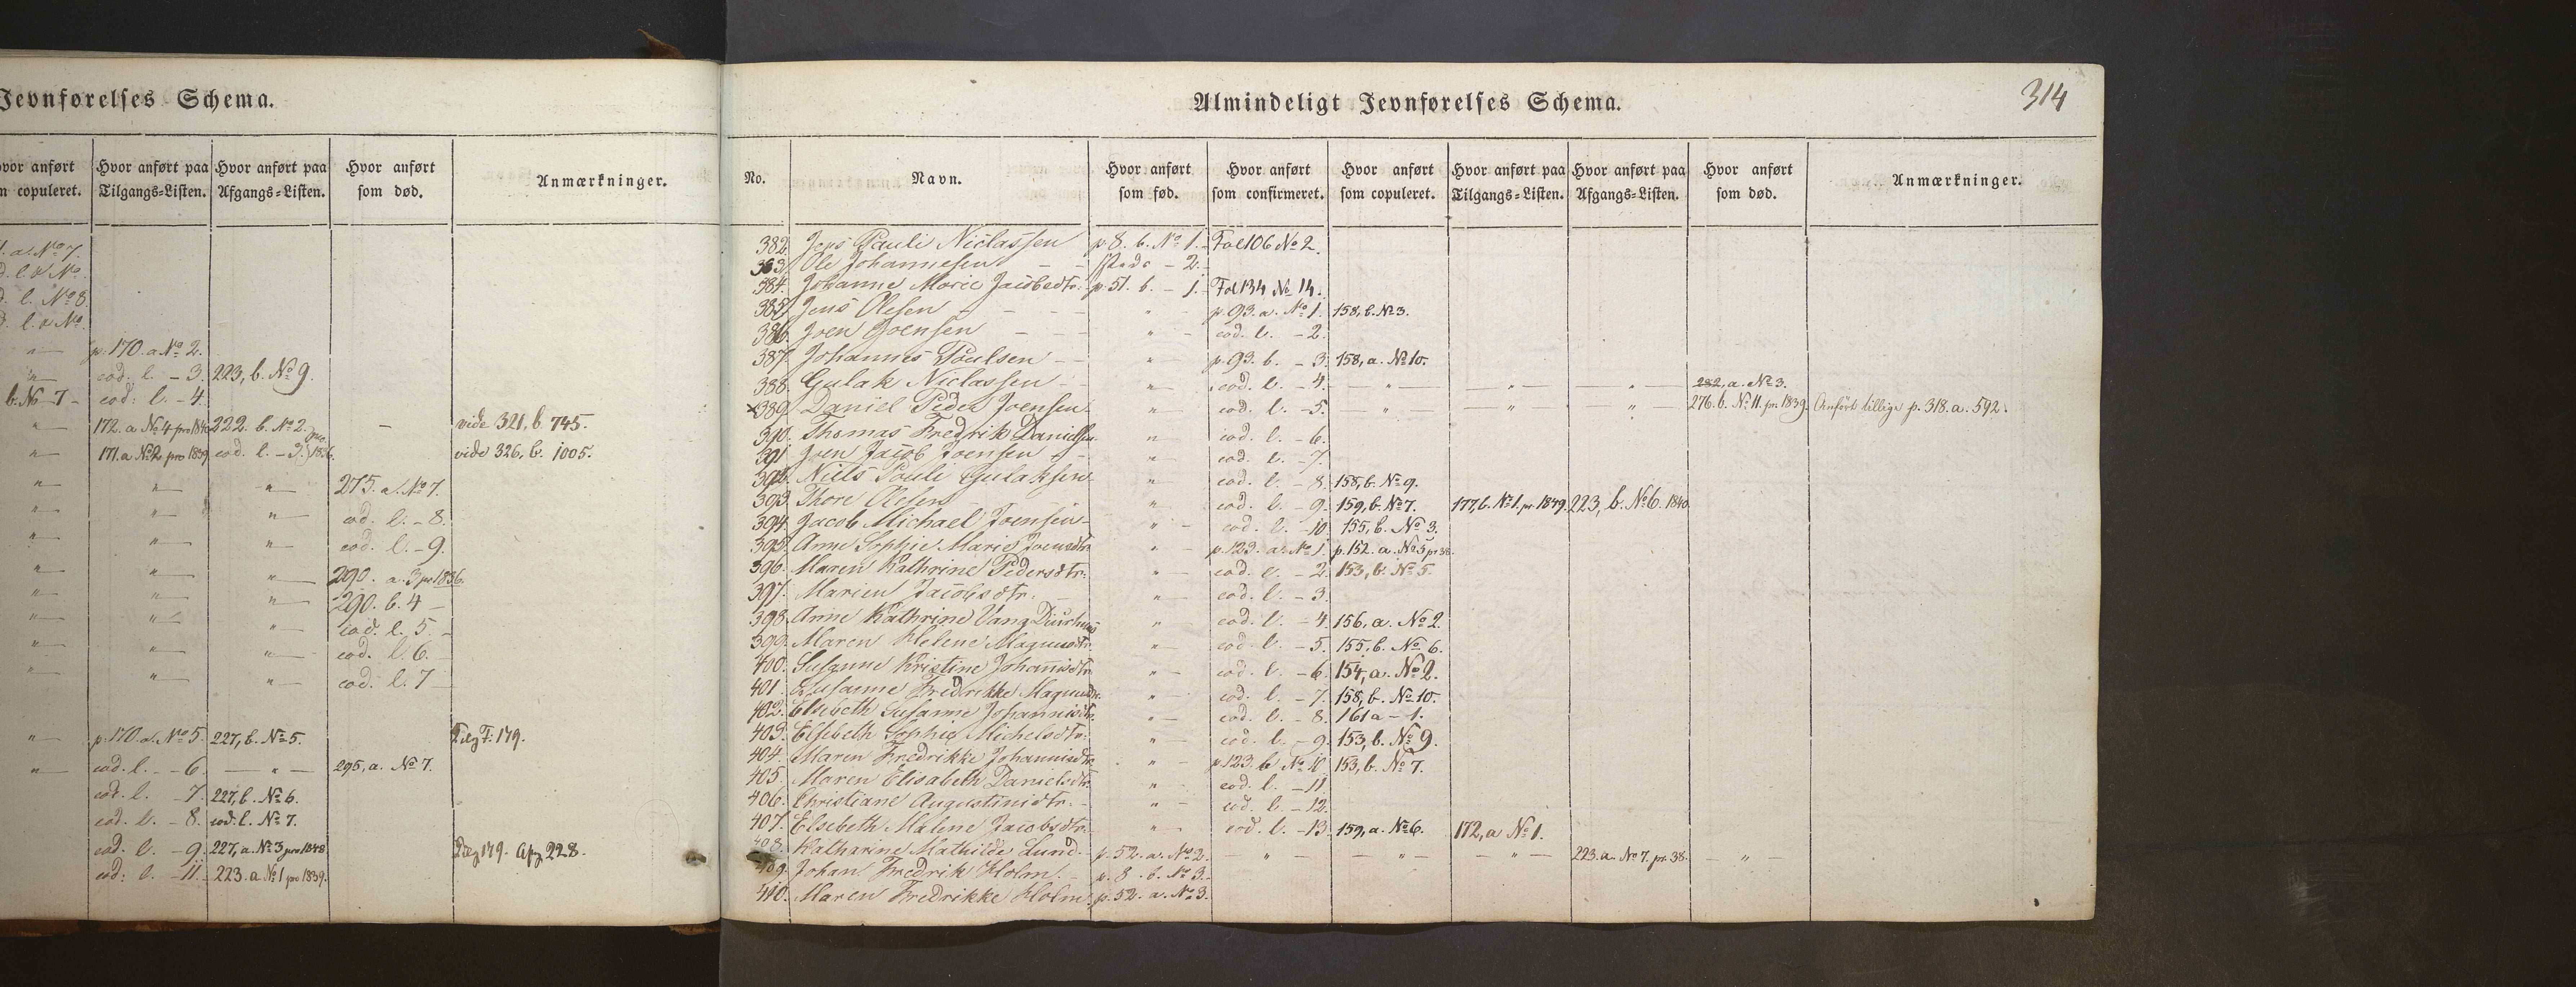 Jevnførelses Schema.
vor anført Hvor anført paa Hvor anført paa Hvor anført Anmærkninger.
m copuleret. Tilgangs-Listen. Afgangs-Listen. som død.
. a. No 7.
d. l. No
d. l. No 8.
d. l. No
" p. 170. a No 2.
" eod. l. - 3. 223, b. No 9.
b. No 7 - eod. l. - 4.
" 172. a No 4 pro 1840 222. b. No 2. - vide 321, b. 745.
" 171. a No 2 pro 1839 eod. l. - 3. pro 1836. vide 326, b. 1005.
" " " 275. a. No 7.
" " " eod. l. - 8.
" " " eod. l. - 9.
" " " 290. a. 3 pr 1836.
" " " 290. b. 4 -
" " " eod. l. 5. -
" " " eod. l. 6. -
" " " eod. l. 7 -
" p. 170. a. No 5. 227, b. No 5. Tilg F. 179.
" eod. l. - 6. - " - 295, a. No 7.
eod. l. - 7. 227, b. No 6.
eod. l. - 8. eod. l. No 7.
eod. l. - 9. 227, a. No 3 pro 1848 Tilg 179. Afg 228.
eod. l. - 11. 223. a No 1 pro 1839.
314
Almindeligt Jevnførelses Schema.
No. Navn. Hvor anført Hvor anført Hvor anført Hvor anført paa Hvor anført paa Hvor anført Anmærkninger.
som fød. som confirmeret. som copuleret. Tilgangs-Listen. Afgangs-Listen. som død.
382. Jens Pauli Niclassen p. 8. b. No 1. Fol 106 No 2.
383. Ole Johannesen - - - 2. -
384. Johanne Marie Jacobsdtr. p. 51. b. - 1. Fol 134 No 14.
385. Jens Olesen - - - " - p. 93. a. No 1. 158, b. No 3.
386. Joen Joensen - - " - eod. l. - 2.
387. Johannes Poulsen - - " p. 93. b. - 3. 158, a. No 10.
388. Gulak Niclassen - - " eod. l. - 4. - " - - " - - " - 282, a. No 3.
x389. Daniel Peder Joensen. " eod. l. - 5. " - " - " 276. b. No 11. pr. 1839. Anført tillige p. 318. a. 592.
390. Thomas Fredrik Danielsen " eod. l. - 6.
391. Joen Jacob Joensen - - " eod. l. - 7.
392. Niels Pauli Gulaksen " eod. l. - 8. 158, b. No 9.
393. Thore Olesen " eod. l. - 9. 159, b. No 7. 177, b. No 1. pr. 1849. 223, b. No 6. 1840.
394. Jacob Michael Joensen - " - eod. l. - 10. 155, b. No 3.
395. Anne Sophie Marie Joensdtr " - p. 123. a. No 1. p. 152. a. No 5 pr 38.
396. Maren Kathrine Pedersdtr. " - eod. l. - 2. 153, b. No 5.
397. Marien Jacobsdtr. - " - eod. l. - 3.
398. Anne Kathrine Vang Diurhuus " eod. l. - 4. 156, a. No 2.
399. Maren Helene Magnusdtr. " - eod. l. - 5. 155, b. No 6.
400. Susanne Kristine Johannisdtr. " - eod. l. - 6. 154, a. No 2.
401. Susanne Fredrikke Magnusdtr. " - eod. l. - 7. 158, b. No 10.
402. Elsebeth Susanne Johannisdtr. " - eod. l. - 8. 161 a - 1.
403. Elsebeth Sophie Michelsdtr. " eod. l. - 9. 153, b. No 9.
404. Maren Fredrikke Johannisdtr. " - p. 123. b. No 10 153, b. No 7.
405. Maren Elisabeth Danielsdtr. " - eod. l. - 11.
406. Christiane Augustinisdtr. - " - eod. l. - 12.
407. Elsebeth Malene Jacobsdtr. " - eod. l. - 13. 159, a. No 6. 172, a No 1.
408. Katharine Mathilde Lund. - p. 52. a. No 2. " - - " - - " - 223. a. No 7. pr. 38. - " -
409. Johan Fredrik Holm. - p. 8. b. No 3. -
410. Maren Fredrikke Holm. p. 52. a. No 3.